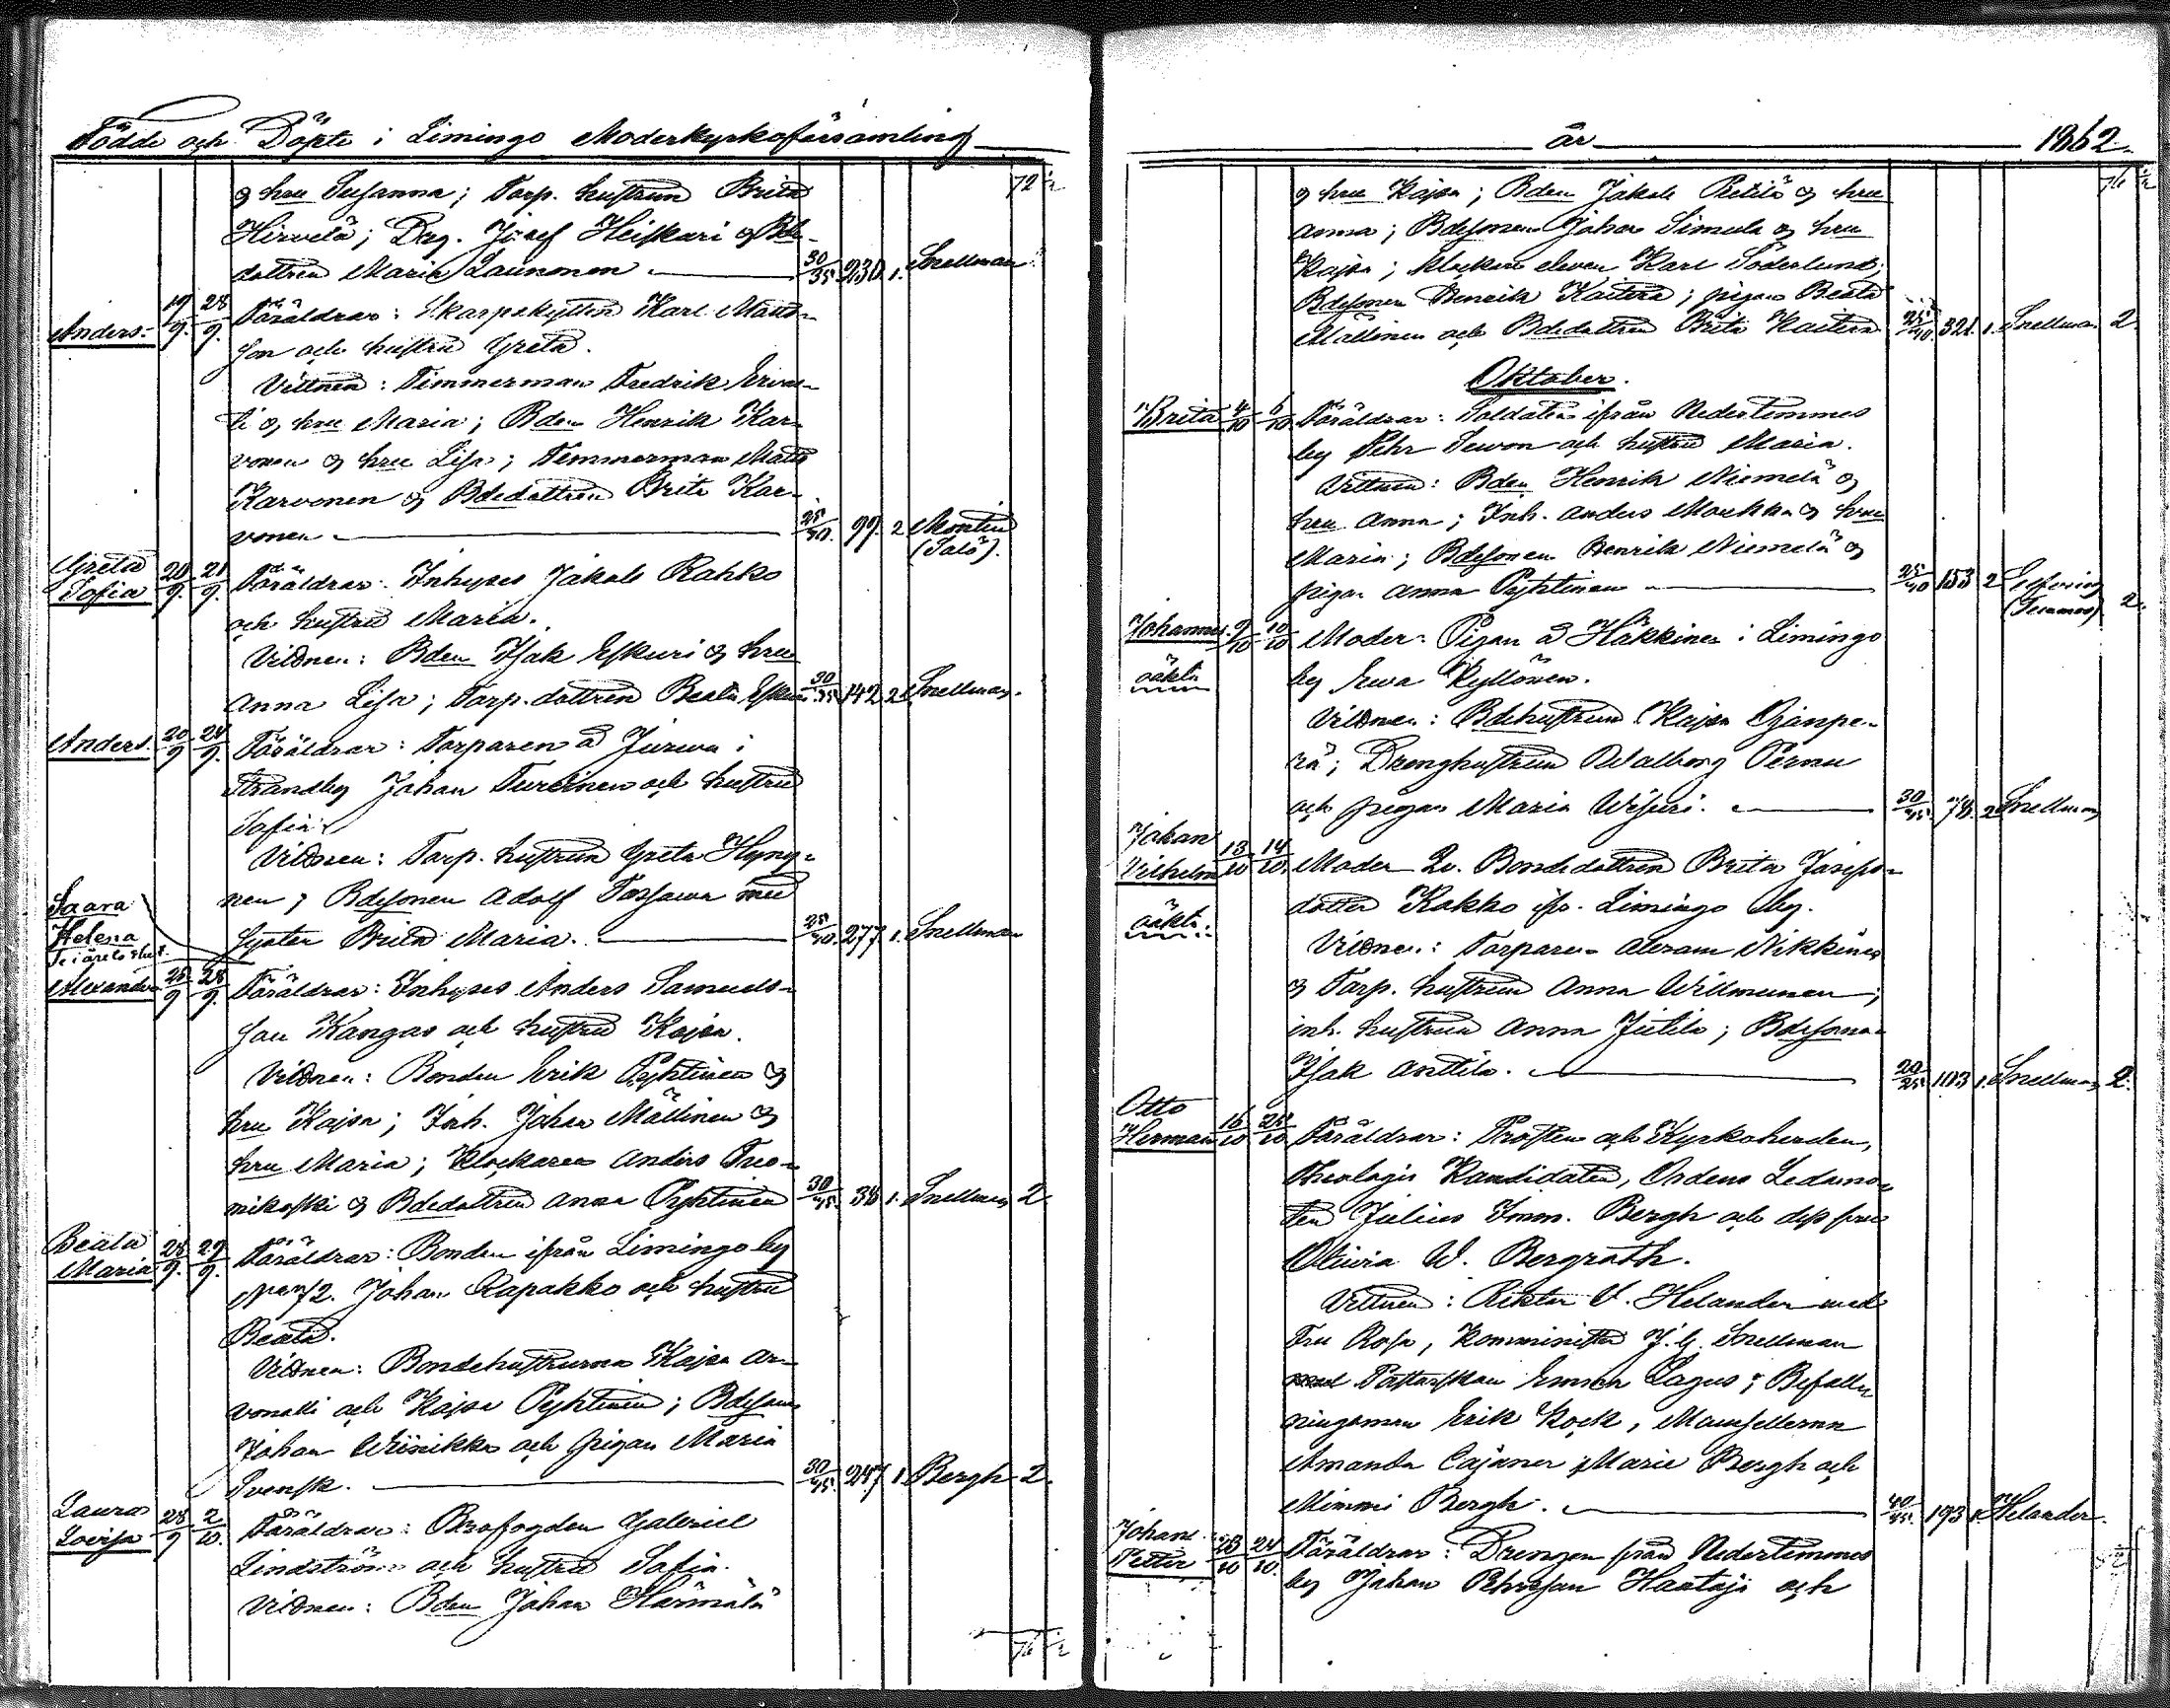 Födde och Döpte i Limingo Moderkyrkoförsamling
72 1/2
o hru Susanna; Torp. hustrun Brita
Hirvelä; Drg. Josef Heiskari o Bde
dottren Maria Launonen 30/35 230 1. Snellman
Anders 19/9. 28/9. Föräldrar: Skarpskytten Karl Matts
son och hustru Greta.
Vittnen: Timmerman Fredrik Erwas
ti o hru Maria; Bden Henrik Kar
vonen o hru Lisa; Timmerman Matts
Karvonen o Bdedottren Brita Kar
vonen 25/30. 99. 2 Montin
(Salo).
Greta
Sofia 20/9. 21/9. Föräldrar: Inhyses Jakob Rahko
och hustru Maria.
Vittnen: Bden Isak Eskuri o hru
Anna Lisa; Torp. dottren Beata Eskuri 30/35 142 2 Snellman.
Anders. 20/9 28/9. Föräldrar: Torparen å Jurwa i
Strandby Johan Turtinen och hustru
Sofia
Vittnen: Torp. hustrun Greta Hyny
nen; Bdesonen Adolf Tossawa med
Syster Brita Maria. 25/30. 277 1. Snellman
Saara
Helena
Alexandra 25/9 28/9. Föräldrar: Inhyses Anders Samuels
son Kangas och hustru Kajsa.
Vittnen: Bonden Erik Pyhtinen o
hru Kajsa; Inh. Johan Mällinen o
hru Maria; Klockaren Anders Freo
nikoski o Bdedottren Anna Pyhtinen 30/35. 38 1. Snellman 2.
Beata
Maria 28/9. 29/9. Föräldrar: Bonden ifrån Limingo by
No 72. Johan Rapakko och hustru
Beata.
Vittnen: Bondehustrurna Kajsa Ar
vonalli och Kajsa Pyhtinen; Bdesonen
Johan Wiinikka och pigan Maria
Svensk. 30/35. 247 1. Bergh 2.
Laura
Lovisa 28/9 2/10. Föräldrar: Brofogden Gabriel
Lindström och hustru Sofia.
Vittnen: Bden Johan Härmälä
76 1/2
år 1862.
76 1/2
o hru Kajsa; Bden Jakob Pietilä o hru
Anna; Bdesonen Johan Simula o hru
Kajsa; klockare eleven Karl Söderlund;
Bdesonen Henrik Kaitera; pigan Beata
Mällinen och Bdedottren Brita Kaitera 25/30. 321. 1. Snellman 2.
Oktober.
Brita 4/10 6/10. Föräldrar: Soldaten ifrån Nedertemmes
by Pehr Sewon och hustru Maria.
Vittnen: Bden Henrik Niemelä o
hru Anna; Inh. Anders Markka o hru
Maria; Bdesonen Henrik Niemelä o
pigan Anna Pyhtinen 25/30 153 2
(Temmes) 2.
Johannes 9/10 10/10 Moder: Pigan å Häkkinen i Limingo
oäkta by Ewa Kyllönen.
Vittnen: Bdehustrun Kajsa Ojanpe
rä; Drenghustrun Walborg Pernu
och pigan Maria Wisuri. 30/35. 78. 2 Snellman
Johan
Vilhelm 13/10 14/10. Moder Lv. Bondedottren Brita Josefs
dotter Kakko ifr. Limingo by.
oäkta. Vittnen: Torparen Abram Nikkinen
o Torp. hustrun Anna Willmunen;
inh. hustrun Anna Jutila; Bdesonen
Isak Anttila. 20/25 103 1. Snellman 2.
Otto
Herman 16/10 25/10 Föräldrar: Prosten och Kyrkoherden,
Theologie Kandidaten, Ordens Ledamo
ten Julius Imm. Bergh och dess fru
Oliwia W. Bergroth.
Vittnen: Rektor V. Helander med
Fru Rosa, Komminister J. G. Snellman
med Pastorskan Emma Lagus; Befall
ningsman Erik Kock, Mamsellerna
Amanda Cajaner, Marie Bergh och
Mimmi Bergh. 40/45. 193 1. Helander.
Johan
Petter 23/10 24/10. Föräldrar: Drengen från Nedertemmes
by Johan Pehrsson Haataja och